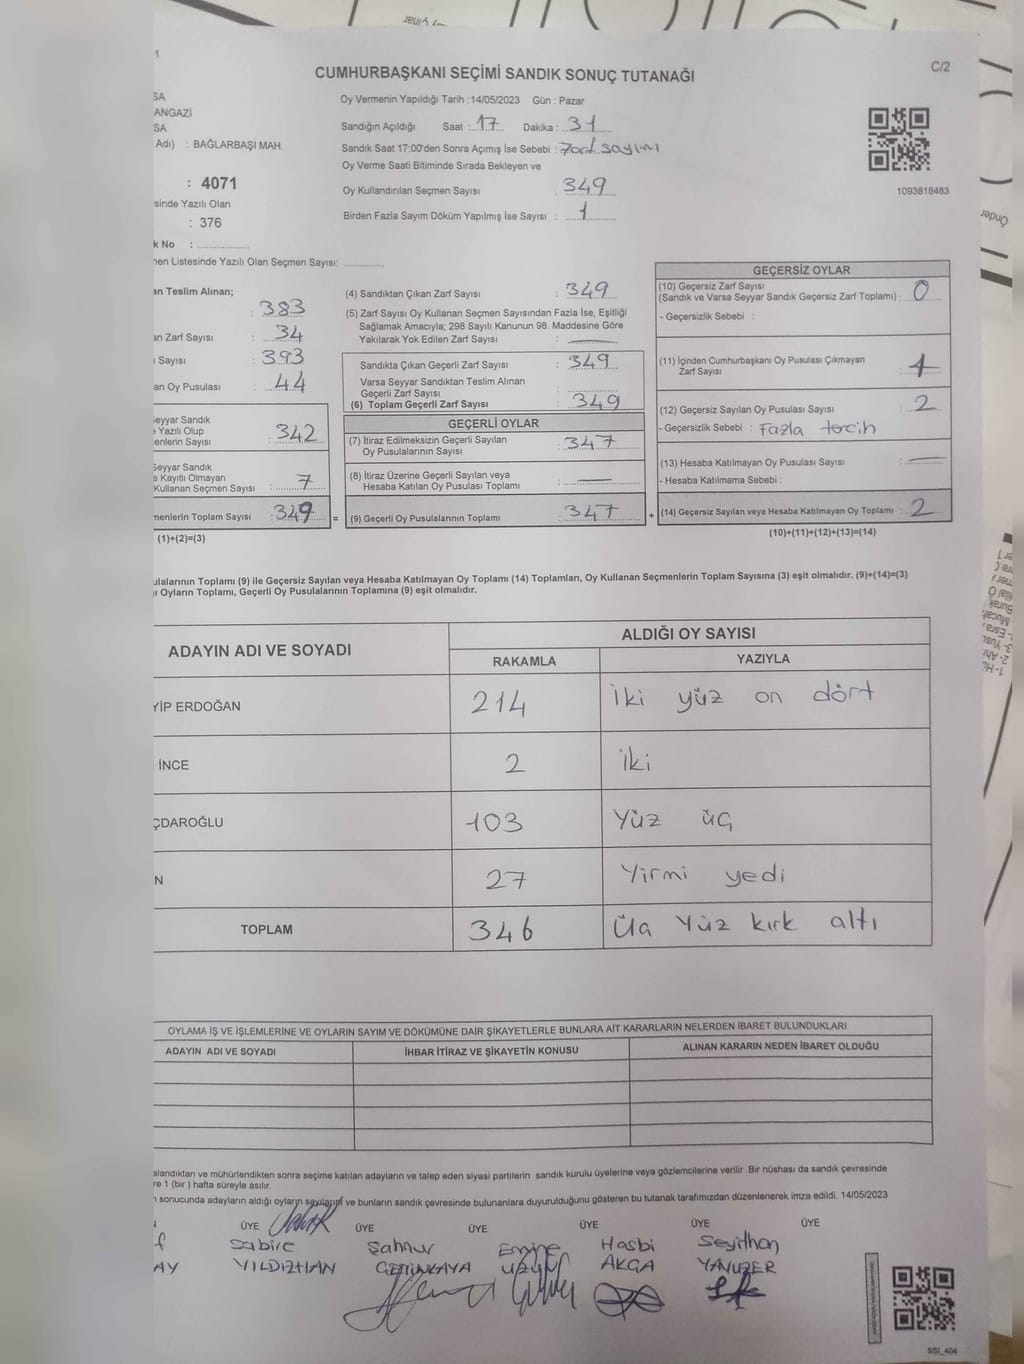 1
C/2
CUMHURBAŞKANI SEÇİMİ SANDIK SONUÇ TUTANAĞI
SA
ANGAZİ
SA
Adı) : BAĞLARBAŞI MAH.
: 4071
sinde Yazılı Olan
: 376
k No :
men Listesinde Yazılı Olan Seçmen Sayısı:
Oy Vermenin Yapıldığı Tarih :14/05/2023 Gün : Pazar
Sandığın Açıldığı Saat : 17 Dakika : 31
Sandık Saat 17:00'den Sonra Açımış İse Sebebi : Zarf sayımı
Oy Verme Saati Bitiminde Sırada Bekleyen ve
Oy Kullandırılan Seçmen Sayısı : 349
Birden Fazla Sayım Döküm Yapılmış İse Sayısı : 1
1093818483
an Teslim Alınan;
: 383
an Zarf Sayısı : 34
ı Sayısı : 393
an Oy Pusulası : 44
Seyyar Sandık
e Yazılı Olup
enlerin Sayısı : 342
Seyyar Sandık
e Kayıtlı Olmayan
Kullanan Seçmen Sayısı : 7
menlerin Toplam Sayısı : 349 =
(1)+(2)=(3)
(4) Sandıktan Çıkan Zarf Sayısı : 349
(5) Zarf Sayısı Oy Kullanan Seçmen Sayısından Fazla İse, Eşitliği
Sağlamak Amacıyla; 298 Sayılı Kanunun 98. Maddesine Göre
Yakılarak Yok Edilen Zarf Sayısı : —
Sandıkta Çıkan Geçerli Zarf Sayısı : 349
Varsa Seyyar Sandıktan Teslim Alınan
Geçerli Zarf Sayısı :
(6) Toplam Geçerli Zarf Sayısı : 349
GEÇERLİ OYLAR
(7) İtiraz Edilmeksizin Geçerli Sayılan
Oy Pusulalarının Sayısı : 347
(8) İtiraz Üzerine Geçerli Sayılan veya
Hesaba Katılan Oy Pusulası Toplamı : —
(9) Geçerli Oy Pusulalarının Toplamı : 347 +
GEÇERSİZ OYLAR
(10) Geçersiz Zarf Sayısı
(Sandık ve Varsa Seyyar Sandık Geçersiz Zarf Toplamı) : 0
- Geçersizlik Sebebi :
(11) İçinden Cumhurbaşkanı Oy Pusulası Çıkmayan
Zarf Sayısı : 1
(12) Geçersiz Sayılan Oy Pusulası Sayısı : 2
- Geçersizlik Sebebi : Fazla tercih
(13) Hesaba Katılmayan Oy Pusulası Sayısı : —
- Hesaba Katılmama Sebebi :
(14) Geçersiz Sayılan veya Hesaba Katılmayan Oy Toplamı : 2
(10)+(11)+(12)+(13)=(14)
ulalarının Toplamı (9) ile Geçersiz Sayılan veya Hesaba Katılmayan Oy Toplamı (14) Toplamları, Oy Kullanan Seçmenlerin Toplam Sayısına (3) eşit olmalıdır. (9)+(14)=(3)
ı Oyların Toplamı, Geçerli Oy Pusulalarının Toplamına (9) eşit olmalıdır.
ADAYIN ADI VE SOYADI ALDIĞI OY SAYISI
RAKAMLA YAZIYLA
YİP ERDOĞAN 214 İki yüz on dört
İNCE 2 İki
ÇDAROĞLU 103 Yüz üç
N 27 Yirmi yedi
TOPLAM 346 Üç Yüz kırk altı
OYLAMA İŞ VE İŞLEMLERİNE VE OYLARIN SAYIM VE DÖKÜMÜNE DAİR ŞİKAYETLERLE BUNLARA AİT KARARLARIN NELERDEN İBARET BULUNDUKLARI
ADAYIN ADI VE SOYADI İHBAR İTİRAZ VE ŞİKAYETİN KONUSU ALINAN KARARIN NEDEN İBARET OLDUĞU
alandıktan ve mühürlendikten sonra seçime katılan adayların ve talep eden siyasi partilerin sandık kurulu üyelerine veya gözlemcilerine verilir .Bir nüshası da sandık çevresinde
re 1 (bir ) hafta süreyle asılır.
n sonucunda adayların aldığı oyların sayılarını ve bunların sandık çevresinde bulunanlara duyurulduğunu gösteren bu tutanak tarafımızdan düzenlenerek imza edildi. 14/05/2023
ÜYE ÜYE ÜYE ÜYE ÜYE ÜYE
Sabire Şahnur Emine Hasbi Seyithan
AY YILDIZHAN ÇETİNKAYA UZUN AKÇA YAVUZER
SSI_404
Önder